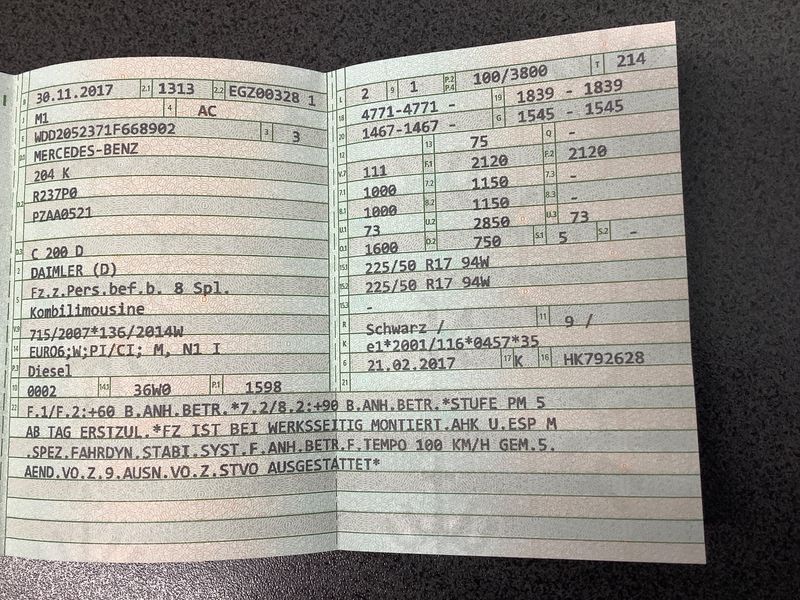 B 30.11.2017 2.1 1313 2.2 EGZ00328 1
J M1 4 AC
E WDD2052371F668902 3 3
D.1 MERCEDES-BENZ
204 K
D.2 R237P0
PZAA0521
D.3 C 200 D
2 DAIMLER (D)
5 Fz.z.Pers.bef.b. 8 Spl.
Kombilimousine
V.9 715/2007*136/2014W
14 EURO6;W;PI/CI; M, N1 I
P.3 Diesel
10 0002 14.1 36W0 P.1 1598
L 2 9 1 P.2 P.4 100/3800 T 214
18 4771-4771 - 19 1839 - 1839
20 1467-1467 - G 1545 - 1545
12 - 13 75 Q -
V.7 111 F.1 2120 F.2 2120
7.1 1000 7.2 1150 7.3 -
8.1 1000 8.2 1150 8.3 -
U.1 73 U.2 2850 U.3 73
O.1 1600 O.2 750 S.1 5 S.2 -
15.1 225/50 R17 94W
15.2 225/50 R17 94W
15.3 -
R Schwarz / 11 9 /
K e1*2001/116*0457*35
6 21.02.2017 17 K 16 HK792628
21
22 F.1/F.2:+60 B.ANH.BETR.*7.2/8.2:+90 B.ANH.BETR.*STUFE PM 5
AB TAG ERSTZUL.*FZ IST BEI WERKSSEITIG MONTIERT.AHK U.ESP M
.SPEZ.FAHRDYN.STABI.SYST.F.ANH.BETR.F.TEMPO 100 KM/H GEM.5.
AEND.VO.Z.9.AUSN.VO.Z.STVO AUSGESTATTET*